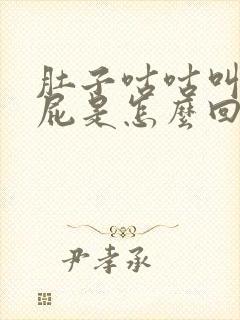 肚子咕咕叫
屁是怎麼回
尹孝承